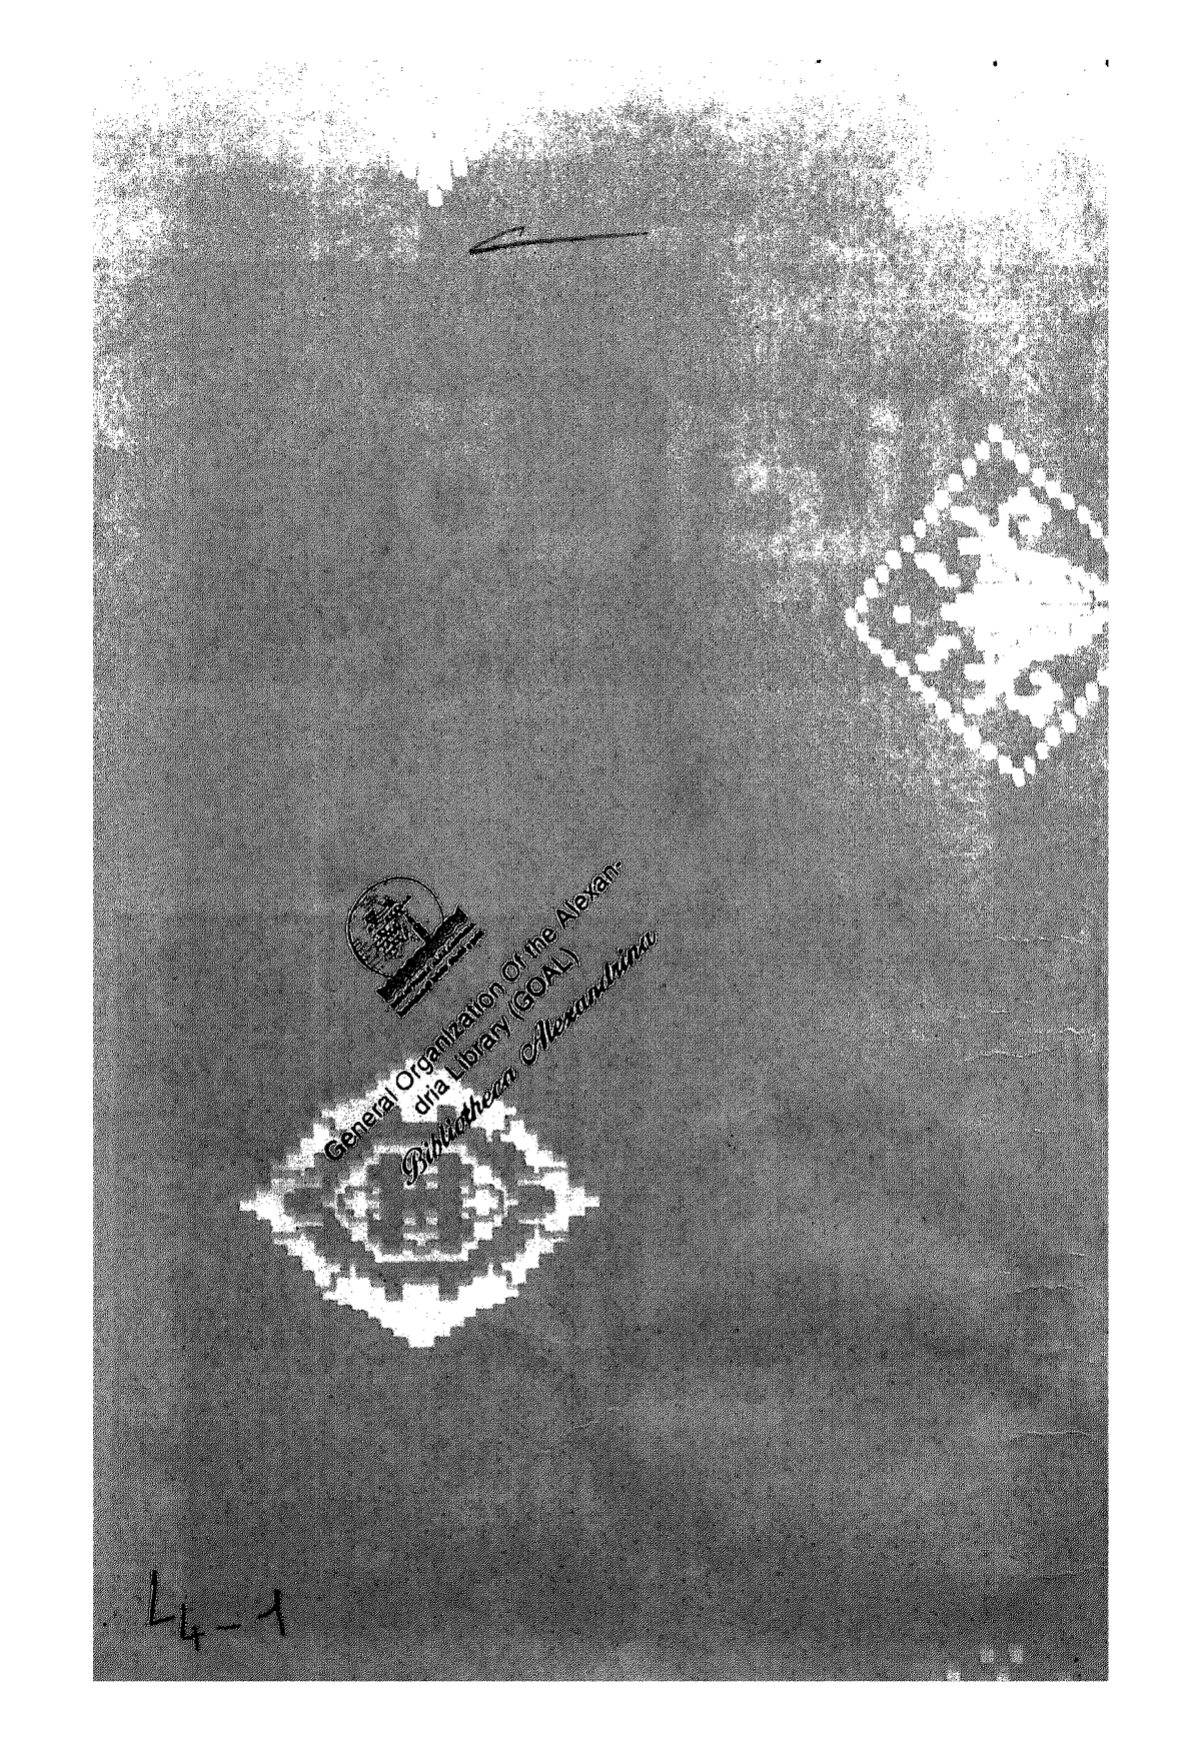 General Organization Of the Alexan-
dria Library (GOAL)
Bibliotheca Alexandrina
L4-1